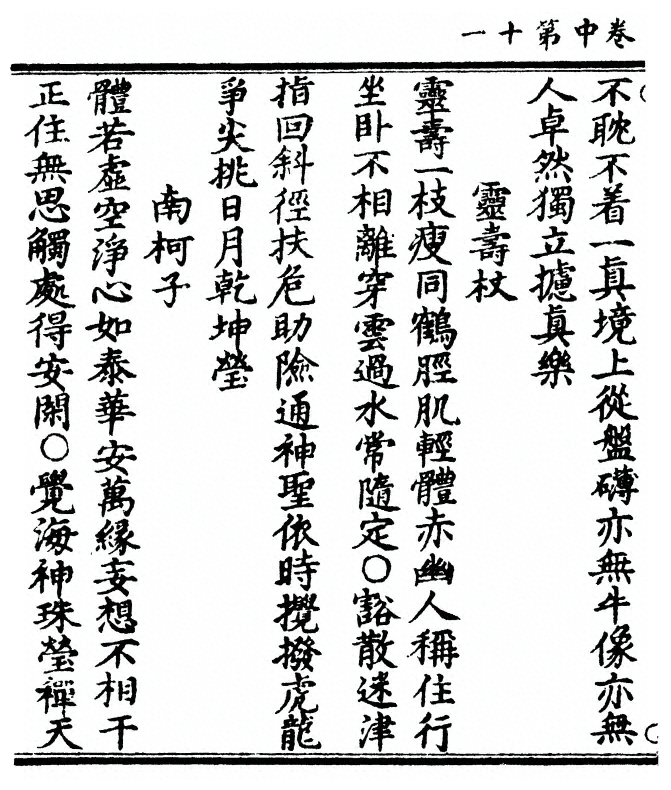 卷中第十一
不耽不着一眞境上從盤礴亦無牛像亦無
人卓然獨立據眞樂
靈壽杖
靈壽一枝瘦同鶴脛肌輕體赤幽人稱住行
坐卧不相離穿雲過水常隨定〇豁散迷津
指回斜徑扶危助險通神聖依時攪撥虎龍
爭尖挑日月乾坤瑩
南柯子
體若虛空淨心如泰華安萬緣妄想不相干
正住無思觸處得安閑〇覺海神珠瑩禪天